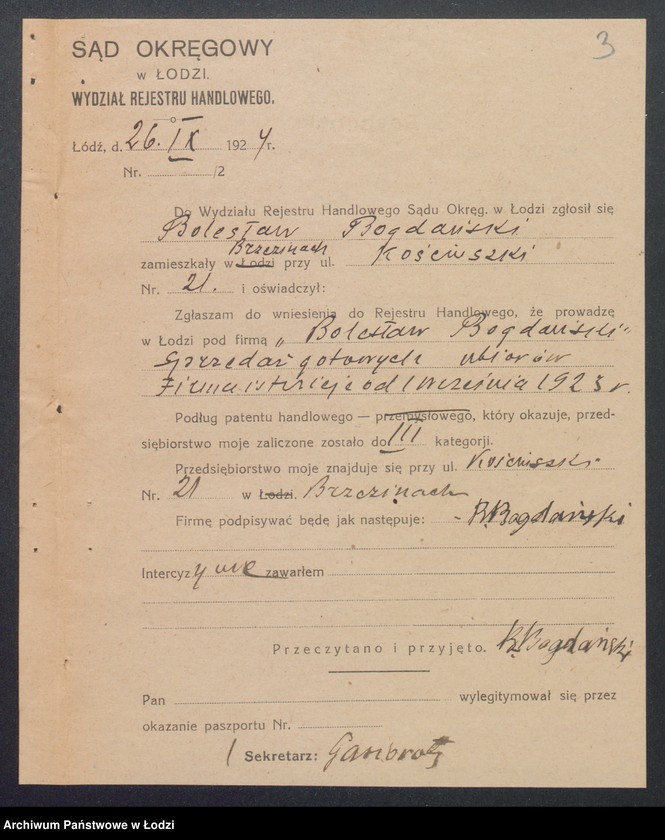 3
SĄD OKRĘGOWY
w ŁODZI.
WYDZIAŁ REJESTRU HANDLOWEGO.
Łódź, d. 26. IX 1924 r.
Nr. /2
Do Wydziału Rejestru Handlowego Sądu Okręg. w Łodzi zgłosił się
Bolesław Bogdański
Brzezinach
zamieszkały w Łodzi przy ul. Kościuszki
Nr. 21. i oświadczył:
Zgłaszam do wniesienia do Rejestru Handlowego, że prowadzę
w Łodzi pod firmą „Bolesław Bogdański"
Sprzedaż gotowych ubiorów
Firma istnieje od 1 września 1923 r.
Podług patentu handlowego — przemysłowego, który okazuje, przed-
siębiorstwo moje zaliczone zostało do III kategorji.
Przedsiębiorstwo moje znajduje się przy ul. Kościuszki
Nr. 21 w Łodzi. Brzezinach
Firmę podpisywać będę jak następuje: - B. Bogdański
Intercyzy nie zawarłem
Przeczytano i przyjęto. B. Bogdański
Pan wylegitymował się przez
okazanie paszportu Nr.
Sekretarz:
Archiwum Państwowe w Łodzi